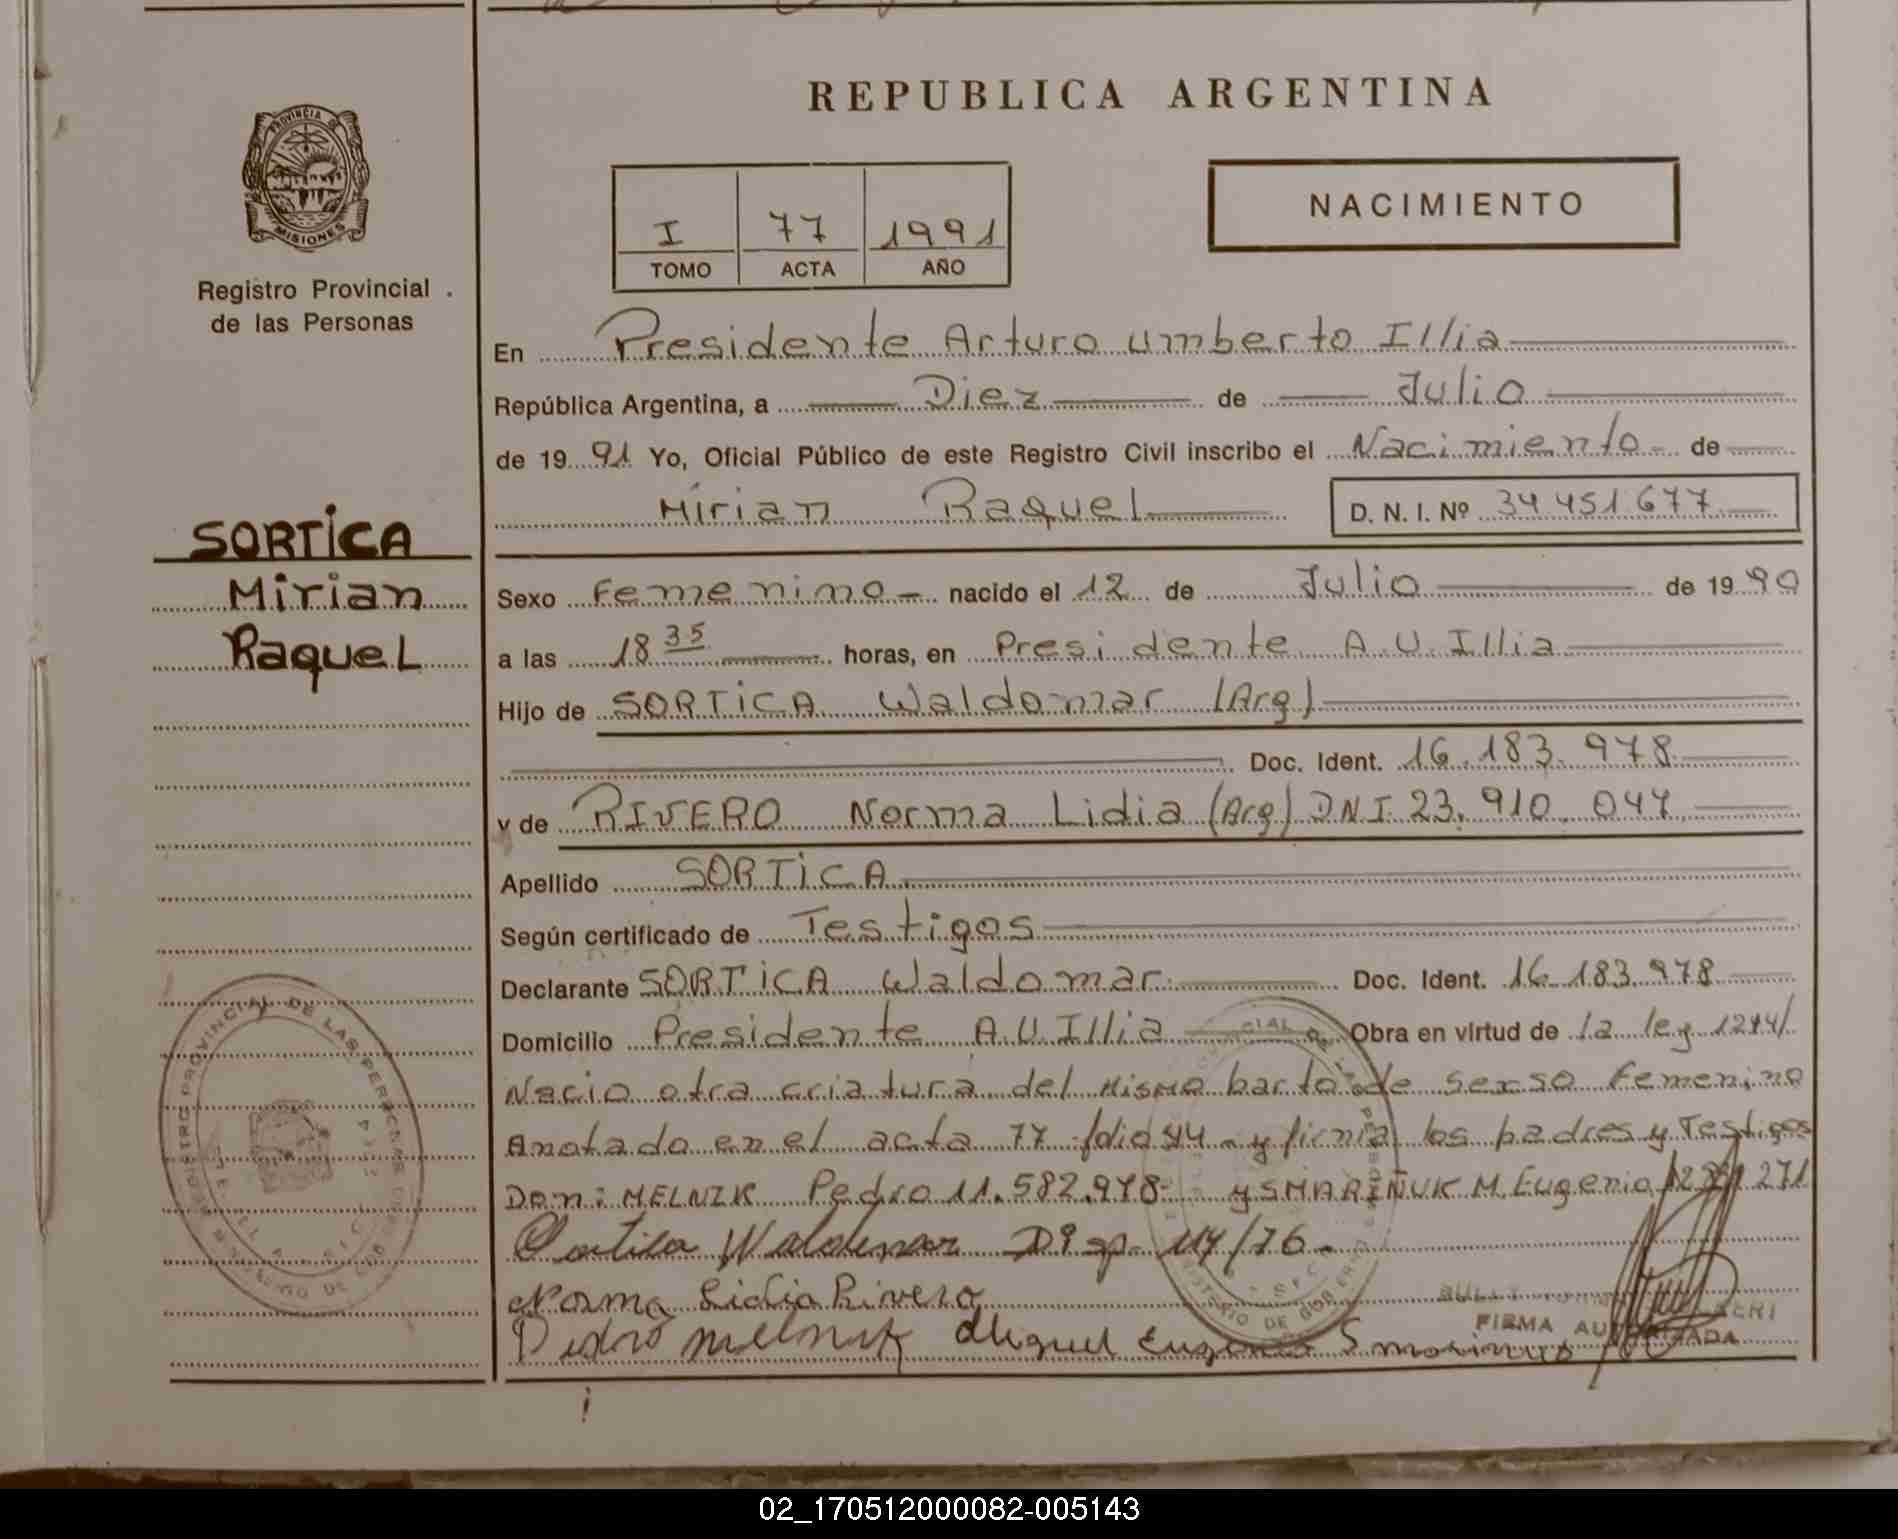 REPUBLICA ARGENTINA
PROVINCIA DE
MISIONES
Registro Provincial
de las Personas
I 77 1991
TOMO ACTA AÑO
NACIMIENTO
En Presidente Arturo Umberto Illia
República Argentina, a Diez de Julio
de 1991 Yo, Oficial Público de este Registro Civil inscribo el Nacimiento de
Mirian Raquel D. N. I. Nº 34 451 677
SORTiCA
Mirian
Raquel
Sexo Femenino nacido el 12 de Julio de 1990
a las 18 35 horas, en Presidente A.U. Illia
Hijo de SORTiCA Waldomar (Arg)
Doc. Ident. 16.183.978
y de RIVERO Norma Lidia (Arg) DNI. 23.910.047
Apellido SORTiCA
Según certificado de Testigos
Declarante SORTiCA Waldomar Doc. Ident. 16 183.978
Domicilio Presidente A.U.Illia Obra en virtud de la ley
Nacio otra criatura del mismo barto de sexso Femenino
Anotado en el acta 77 folio y firma los padres y Testigos
Don: MELNIK Pedro 11.582.978- y SMARIÑUK M. Eugenio 271
Sortica Waldemar
Norma Lidia Rivero
Pedro Melnik Miguel Eugenio
FIRMA AUTORIZADA
REGISTRO PROVINCIAL DE LAS PERSONAS
02_170512000082-005143